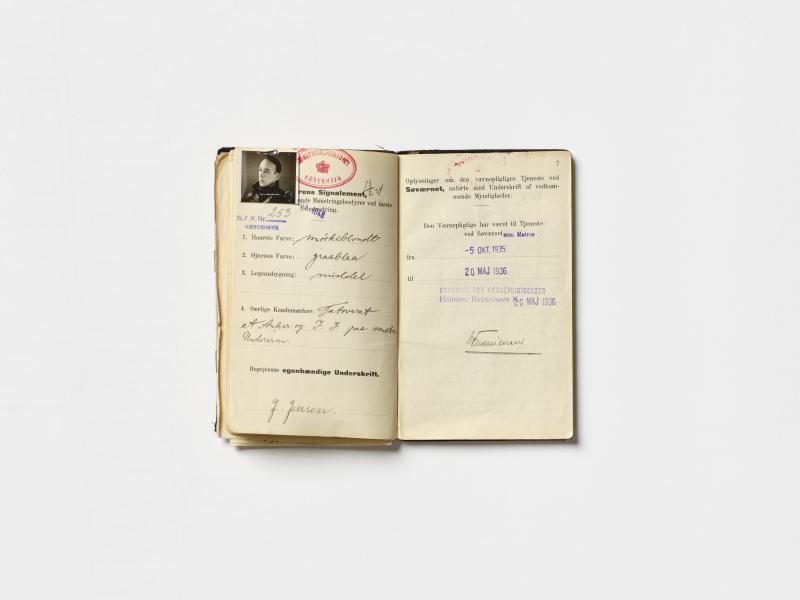 KØBENHAVN
rens Signalement,
ende Mønstringsbestyrer ved første
Udmønstring.
S.F.K.Nr. 253
KØBENHAVN
1. Haarets Farve: mörkeblondt
2. Øjnenes Farve: graablaa
3. Legemsbygning: middel
4. Særlige Kendemærker: Tatoveret
et Anker og J. J. paa venstre
Underarm.
Bogejerens egenhændige Underskrift.
J. Jensen.
7
Oplysninger om den værnepligtiges Tjeneste ved
Søværnet, anførte med Underskrift af vedkom-
mende Myndigheder.
Den Værnepligtige har været til Tjeneste
ved Søværnet som Matros
fra -5 OKT. 1935
til 20 MAJ 1936
FOR VÆRNEPLIGTSSAGER
Holmen, København K. 20 MAJ 1936